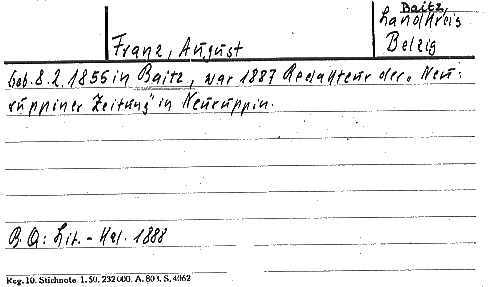 Baitz,
Landkreis
Franz, August
Belzig
Geb. 8.2.1856 in Baitz, war 1887 Redakteur der „Neu-
ruppiner Zeitung" in Neuruppin.
B.Q: Lit.-Kal. 1888
Reg. 10. Stichnote 1. 50. 232000. A. 803. S. 4062